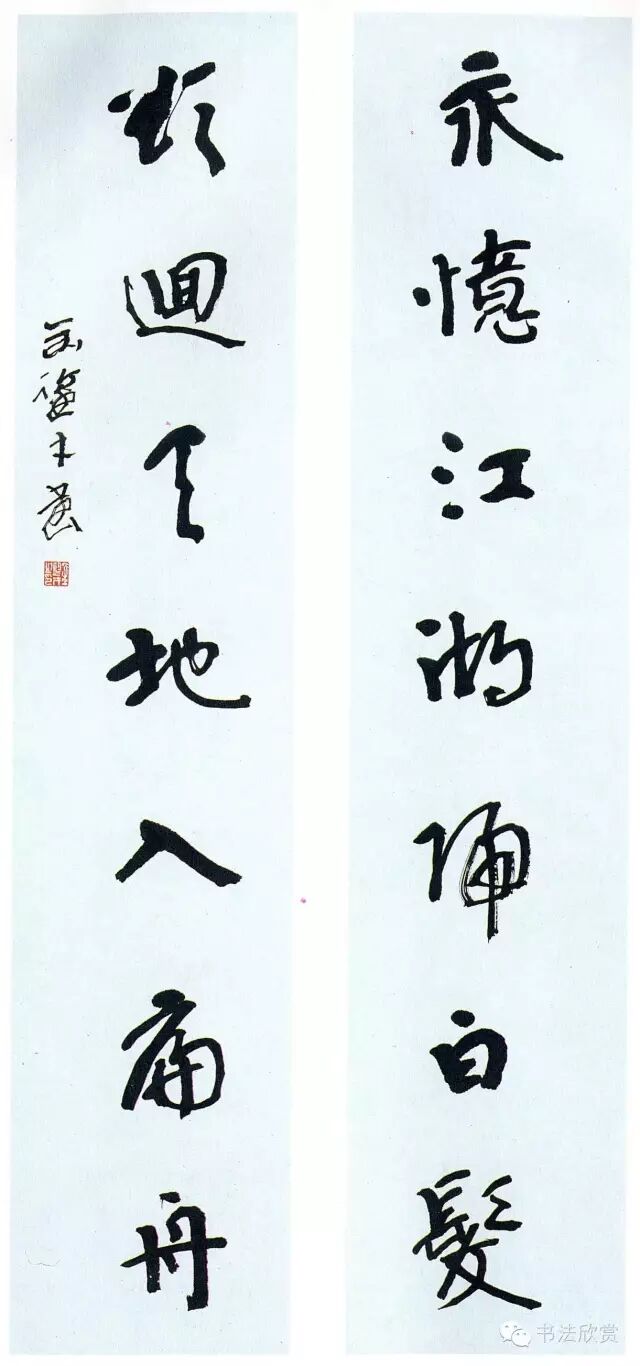 永憶江湖歸白髮
欲迴天地入扁舟
书法欣赏